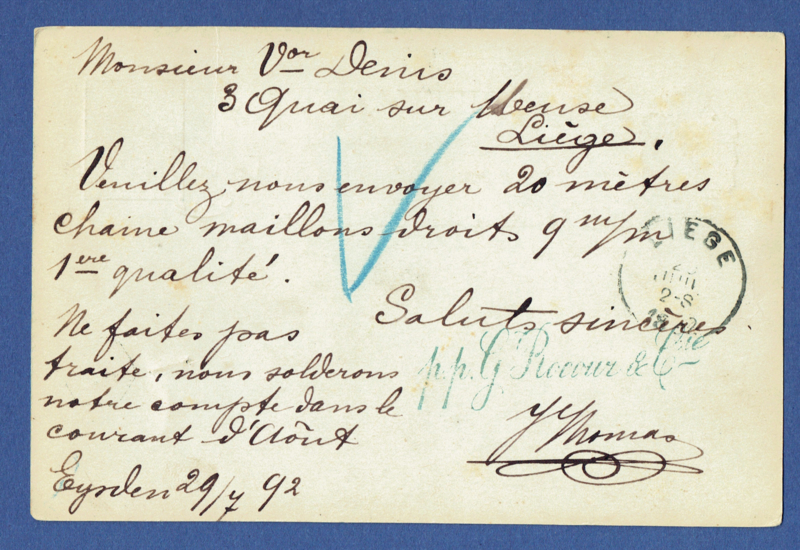 Monsieur Vor Denis
3 Quai sur Meuse
Liège.
Veuillez nous envoyer 20 mètres
chaine maillons droits 9 m/m
1ère qualité.
Saluts sincères.
Ne faites pas
traite, nous solderons
notre compte dans le
courant d'Août
Eysden 29/7 92
pp. G. Rocour & Cie
J Thomas
LIEGE
2-8